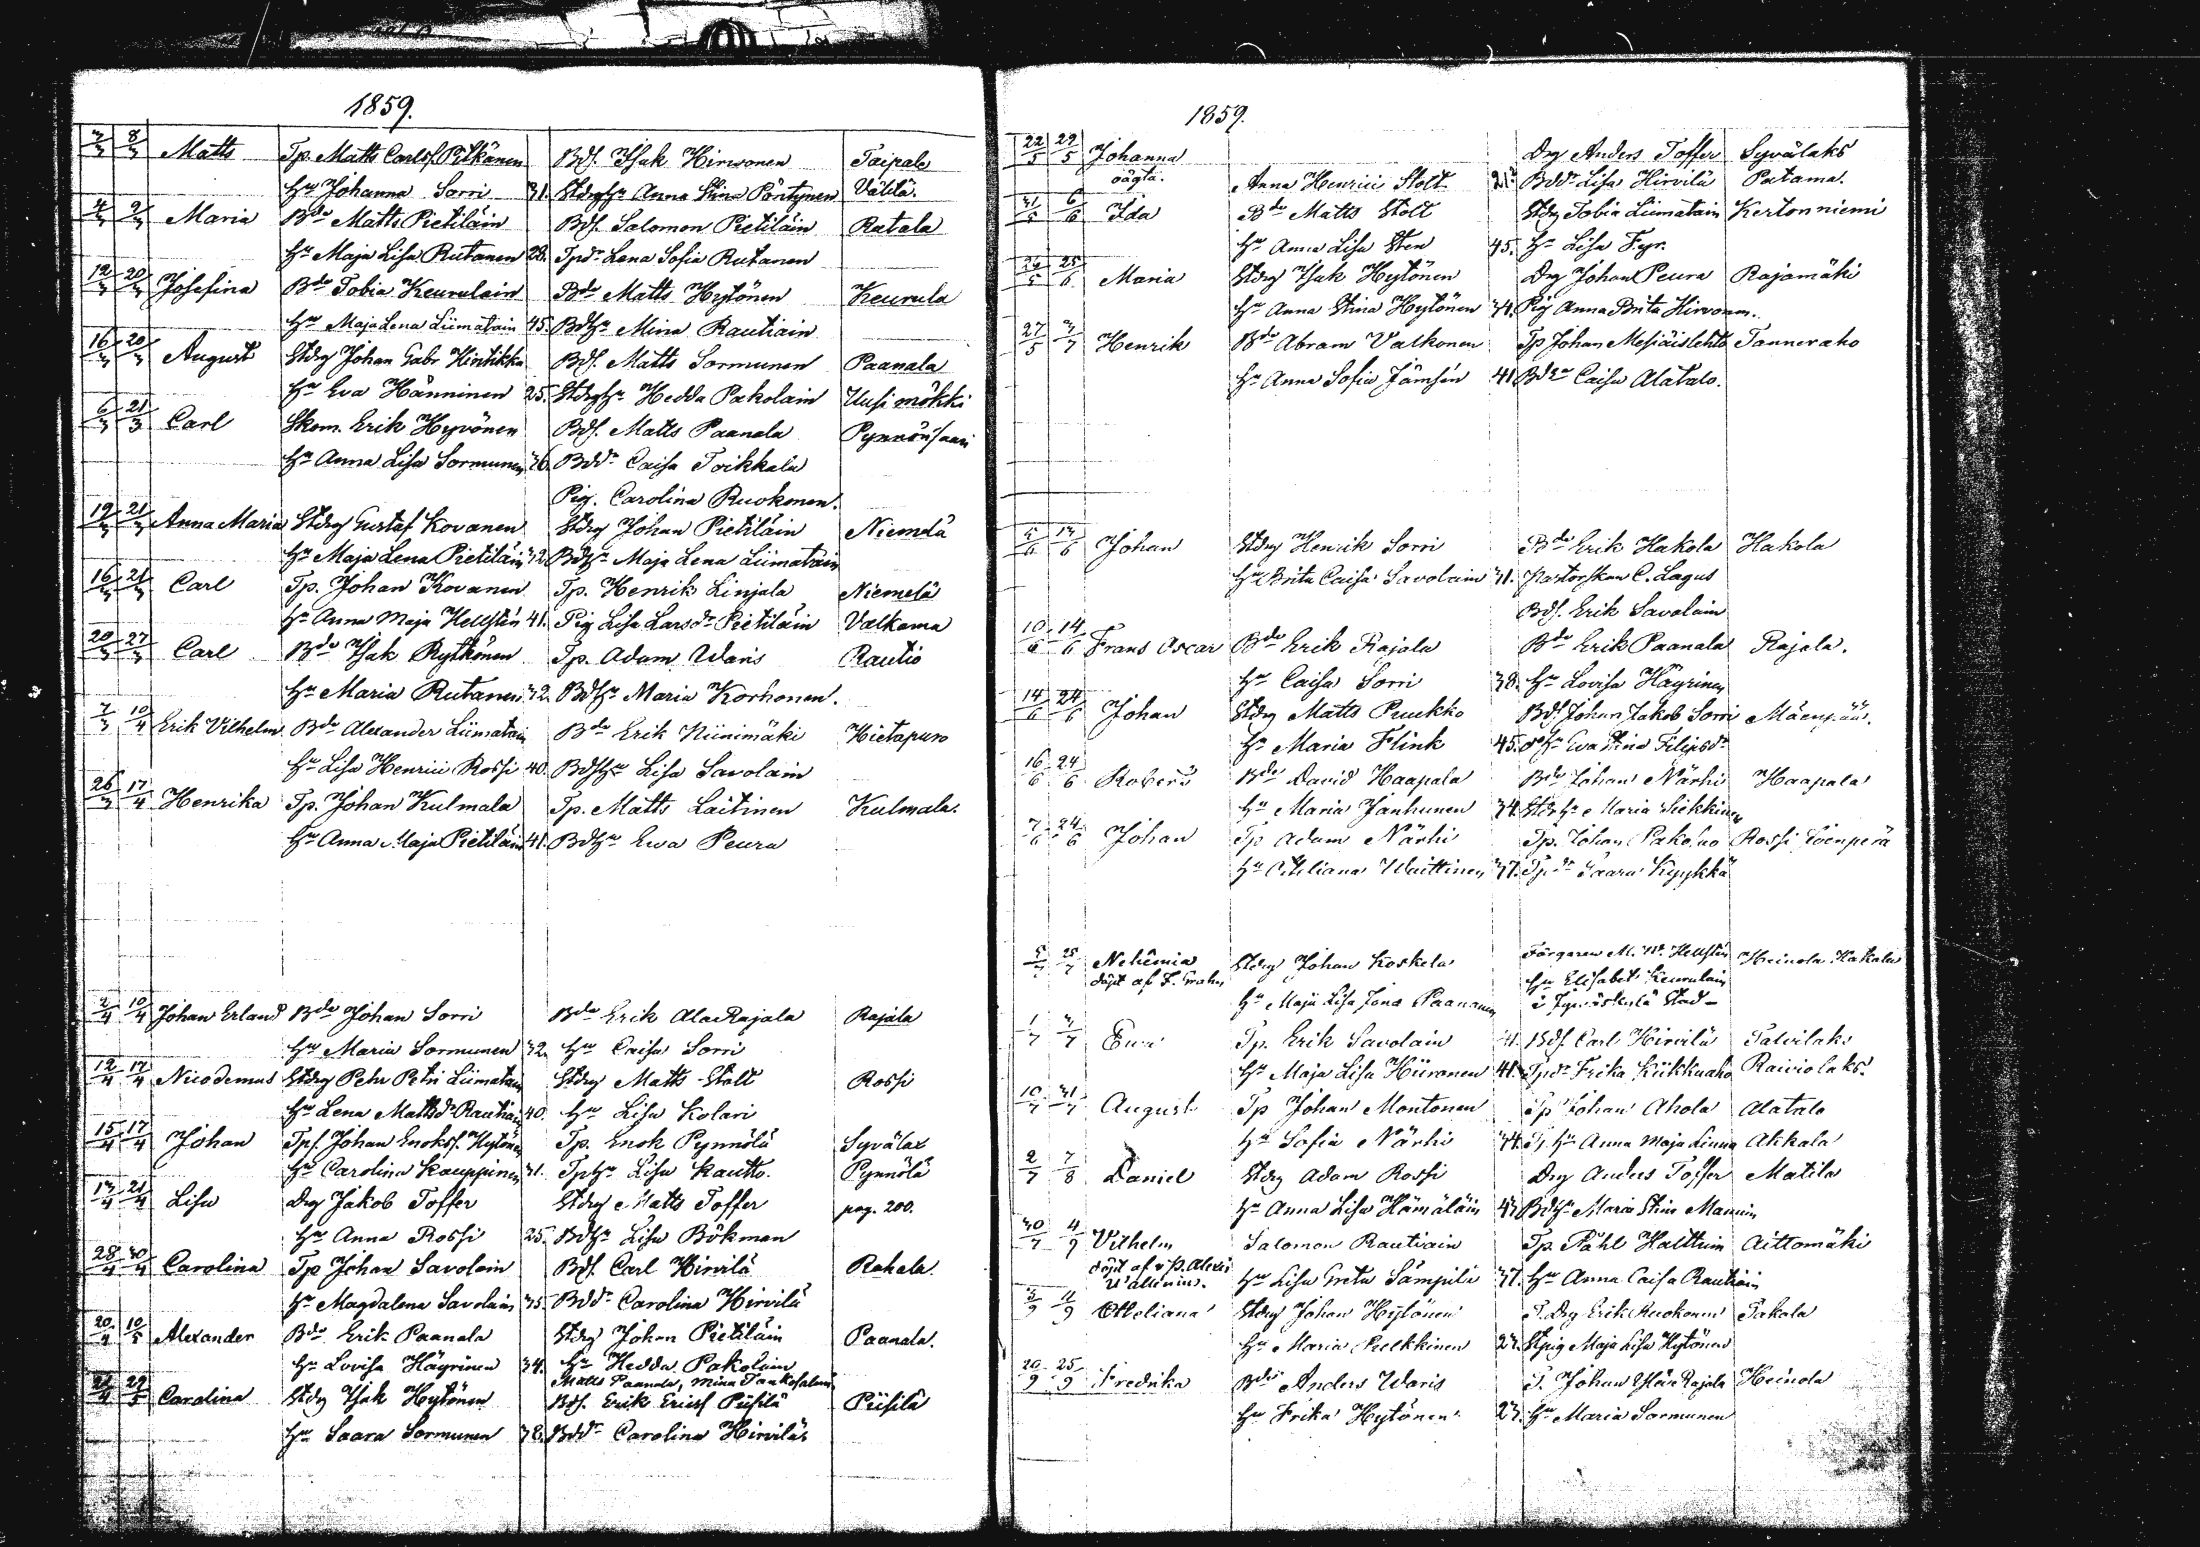 1859.
3/3 8/3 Matts Tp. Matts Carlss. Pitkänen Bds. Isak Hirvonen Taipale
Hu Johanna Sorri 31. Stdrghu Anna Stina Pöntynen Välilä.
4/3 9/3 Maria Bde Matts Pietiläin Bds. Salomon Pietiläin Ratala
Hu Maja Lisa Rutanen 28. Tpdr Lena Sofia Rutanen
12/3 20/3 Josefina Bde Tobia Keurulain Bde Matts Hytönen Keurula
Hu Maja Lena Liimatain 45. Bdhu Mina Rautiain
16/3 20/3 August Stdrg Johan Gabr Hintikka Bds. Matts Sormunen Paanala
Hu Eva Hänninen 25. Stdrghu Hedda Pakolain Uusi mökki
6/3 21/3 Carl Skom. Erik Hyvönen Bds. Matts Paanala Pynnönsaari
Hu Anna Lisa Sormunen 36. Bddr Caisa Toikkala
Pig. Carolina Ruokonen.
19/3 21/3 Anna Maria Stdrg Gustaf Kovanen Stdrg Johan Pietiläin Niemelä
Hu Maja Lena Pietiläin 32. Bdhu Maja Lena Liimatain
16/3 21/3 Carl Tp. Johan Kovanen Tp. Henrik Linjala Niemelä
Hu Anna Maja Hellsten 41. Pig Lisa Larsdr Pietiläin Valkama
20/3 27/3 Carl Bde Isak Rytkönen Tp. Adam Waris Rautio
Hu Maria Rutanen 32. Bdhu Maria Korhonen.
7/3 10/4 Erik Vilhelm Bde Alexander Liimatain Bde Erik Niinimäki Hietapuro
Hu Lisa Henrici Rossi 40. Bdshu Lisa Savolain
26/3 17/4 Henrika Tp. Johan Kulmala Tp. Matts Laitinen Kulmala.
Hu Anna Maja Pietiläin 41. Bdhu Ewa Peura
2/4 10/4 Johan Erland Bde Johan Sorri Bde Erik Ala Rajala Rajala
Hu Maria Sormunen 32. Hu Caisa Sorri
12/4 17/4 Nicodemus Stdrg Pehr Petri Liimatain Stdrg Matts Stolt Rossi
Hu Lena Mattsdr Rautiain 40. Hu Lisa Kolari
15/4 17/4 Johan Tps. Johan Enokss. Hytönen Tp. Enok Pynnölä Syvälax
Hu Carolina Kauppinen 31. Tphu Lisa Kautto. Pynnölä
17/4 21/4 Lisa Drg Jakob Toffer Stdrg Matts Toffer pag. 200.
Hu Anna Rossi 25. Bdhu Lisa Bökman
28/4 30/4 Carolina Tp Johan Savolain Bds. Carl Hirvilä Rahala.
Hu Magdalena Savolain 35. Bddr Carolina Hirvilä
20/4 10/5 Alexander Bde Erik Paanala Stdrg Johan Pietiläin Paanala.
Hu Lovisa Häyrinen 34. Hu Hedda Pakolain
Matts Paanala, Mina Taakosalmi
29/5 Carolina Stdrg Isak Hytönen Bds. Erik Ericss Piisilä Piisilä
Hu Saara Sormunen 38. Bddr Carolina Hirvilä
1859.
22/5 29/5 Johanna Drg Anders Toffer Syvälaks
oägta. Anna Henrici Stolt Bddr Lisa Hirvilä Patama.
31/5 6/6 Ida Bde Matts Stolt Stdrg Tobia Liimatain Kertonniemi
Hu Anna Lisa Sten 45. Hu Lisa Fyr.
25/6 Maria Stdrg Isak Hytönen Drg Johan Peura Rajamäki
Hu Anna Stina Hytönen 34. Pig Anna Brita Hirvonen.
27/5 3/7 Henrik Bde Abram Valkonen Tp Johan Mesiäislehto Tannerako
Hu Anna Sofia Jämsén 41 Bddr Caisa Alatalo.
5/6 13/6 Johan Stdrg Henrik Sorri Bde Erik Hakola Hakola
Hu Brita Caisa Savolain 31. Pastorskan C. Lagus
Bds. Erik Savolain
10/6 14/6 Frans Oscar Bde Erik Rajala Bde Erik Paanala Rajala.
Hu Caisa Sorri 38. Hu Lovisa Häyrinen
14/6 24/6 Johan Stdrg Matts Puukko Bds. Johan Jakob Sorri Mäenpää.
Hu Maria Flink 45. Hu Eva Stina Filipsdr
16/6 24/6 Robert Bde David Haapala Bde Johan Närhi Haapala
Hu Maria Janhunen 34. Stdrhu Maria Siekkinen
7/6 24/6 Johan Tp Adam Närhi Tp. Johan Pakoluo Rossi
Hu Otteliana Waittinen 37. Tpdr Saara Kyykkä
5/7 25/7 Nehemia Stdrg Johan Koskela Färgaren M. W. Hellsten Heinola Kakala
döpt af F. Grahn Hu Elisabet Keurulain
Hu Maja Lisa Jona Paananen i Jyväskylä Stad
1/7 3/7 Eva Tp. Erik Savolain Bds. Carl Hirvilä Talvilaks
Hu Maja Lisa Hiironen 41. Tpdr Frika Kiikkuaho Raiviolaks.
10/7 31/7 August Tp Johan Montonen Tp Johan Ahola Alatalo
Hu Sofia Närhi 34. Hu Anna Maja Linna Akkala
2/7 7/8 Daniel Stdrg Adam Rossi Drg Anders Toffer Matila
Hu Anna Lisa Hämäläin 43 Bdhu Maria Stina Mannin
30/7 4/9 Vilhelm Salomon Rautiain Tp. Påhl Halttuin Aittomäki
döpt af Alexis Hu Lisa Greta Sämpilä 37. Hu Anna Caisa Rautiain
3/9 11/9 Otteliana Stdrg Johan Hytönen T. Drg Erik Ruokonen Takala
Hu Maria Pelkkinen 27. Stpig Maja Lisa Hytönen
20/9 25/9 Fredrika Bde Anders Waris T. Johan Ylä Rajala Heinola
Hu Frika Hytönen 27. Hu Maria Sormunen